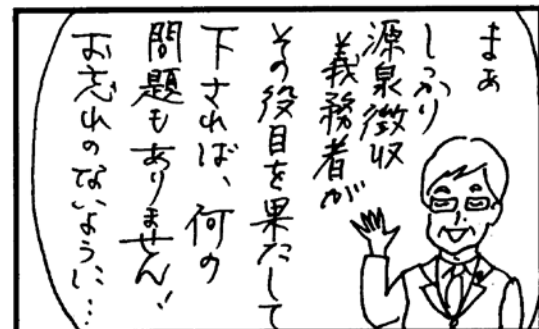 まぁ
しっかり
源泉徴収
義務者が
その役目を果たして
下されば、何の
問題もありません!
お忘れのないように…